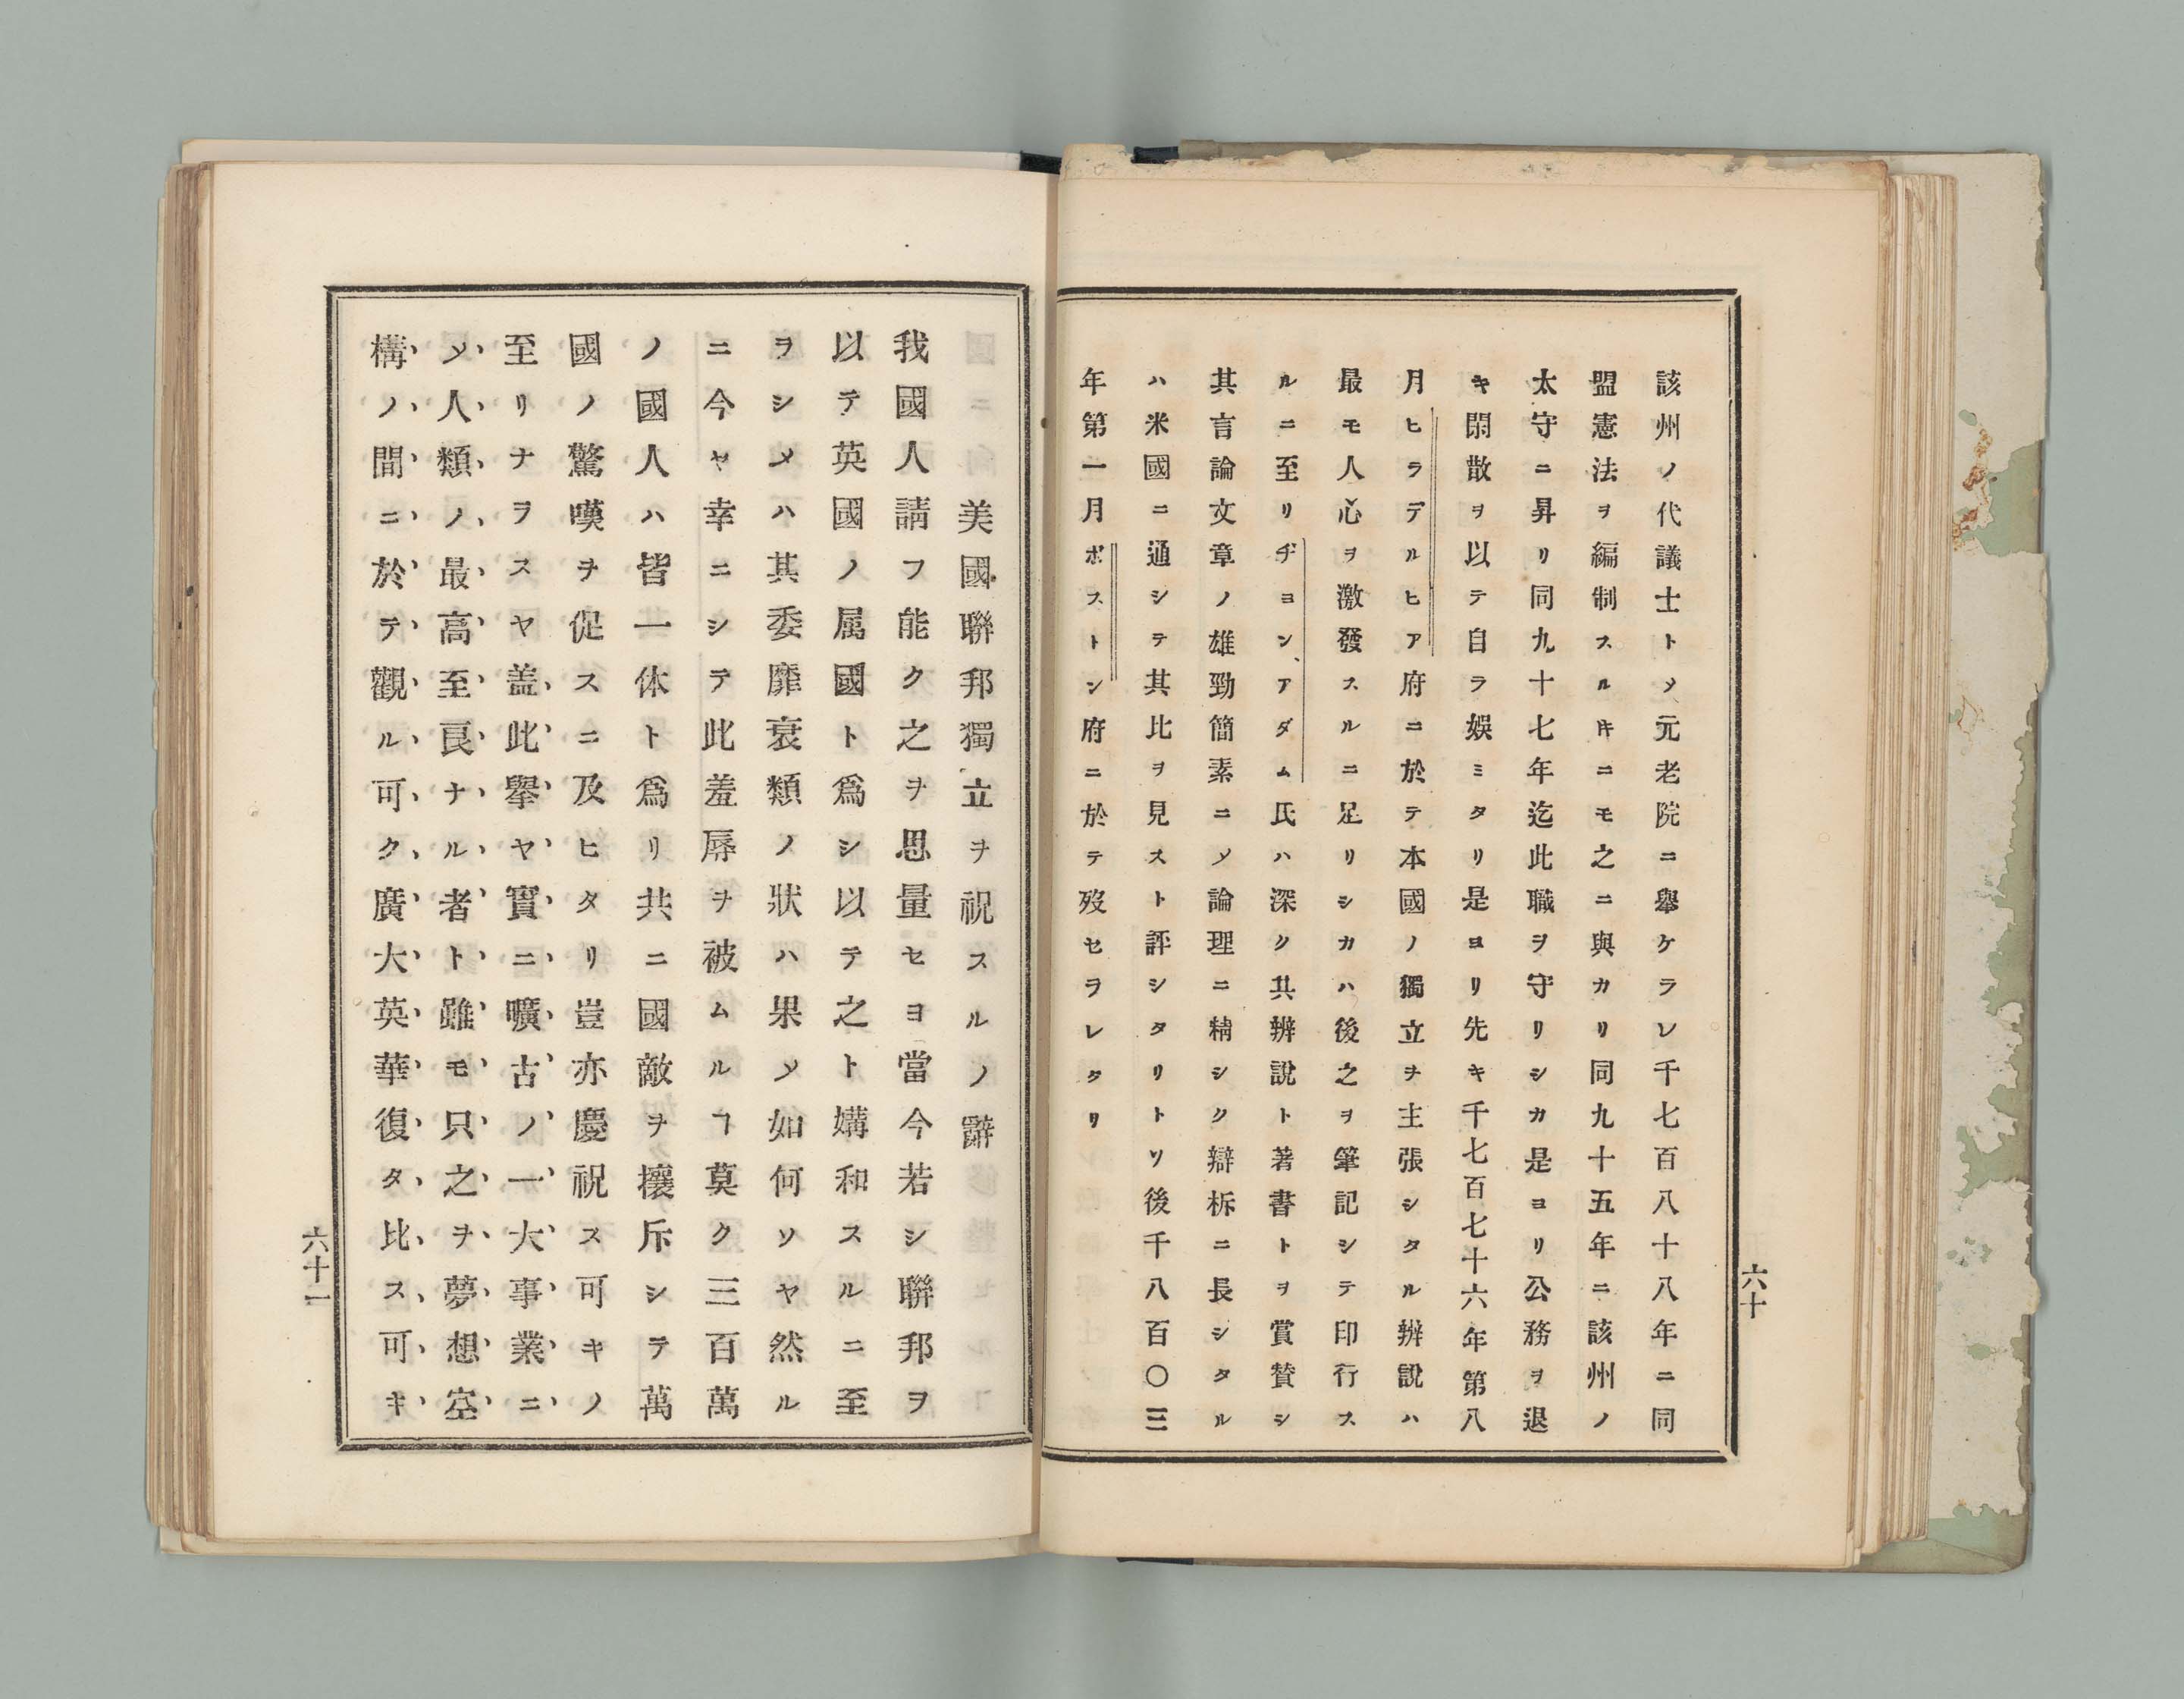 該州ノ代議士トメ元老院ニ舉ケラレ千七百八十八年ニ同
盟憲法ヲ編制スルキニモ之ニ與カリ同九十五年ニ該州ノ
太守ニ昇リ同九十七年迄此職ヲ守リシカ是ヨリ公務ヲ退
キ閑散ヲ以テ自ラ娯ミタリ是ヨリ先キ千七百七十六年第八
月ヒラデルヒア府ニ於テ本國ノ獨立ヲ主張シタル辨説ハ
最モ人心ヲ激發スルニ足リシカハ後之ヲ筆記シテ印行ス
ルニ至リヂヨン、アダム氏ハ深ク其辨説ト著書トヲ賞賛シ
其言論文章ノ雄勁簡素ニメ論理ニ精シク辯柝ニ長シタル
ハ米國ニ通シテ其比ヲ見スト評シタリトソ後千八百〇三
年第一月ボストン府ニ於テ歿セラレタリ
六十
美國聯邦獨立ヲ祝スルノ辭
我國人請フ能ク之ヲ思量セヨ當今若シ聯邦ヲ
以テ英國ノ属國ト爲シ以テ之ト媾和スルニ至
ヲシメハ其委靡衰頽ノ狀ハ果メ如何ソヤ然ル
ニ今ヤ幸ニシテ此羞辱ヲ被ムルヿ莫ク三百萬
ノ國人ハ皆一休ト爲リ共ニ國敵ヲ攘斥シテ萬
國ノ驚嘆ヲ促スニ及ヒタリ豈亦慶祝ス可キノ
至リナラスヤ盖此舉ヤ實ニ曠古ノ一大事業ニ
メ人類ノ最高至良ナル者ト雖モ只之ヲ夢想空
構ノ間ニ於テ觀ル可ク廣大英華復タ比ス可キ
六十一